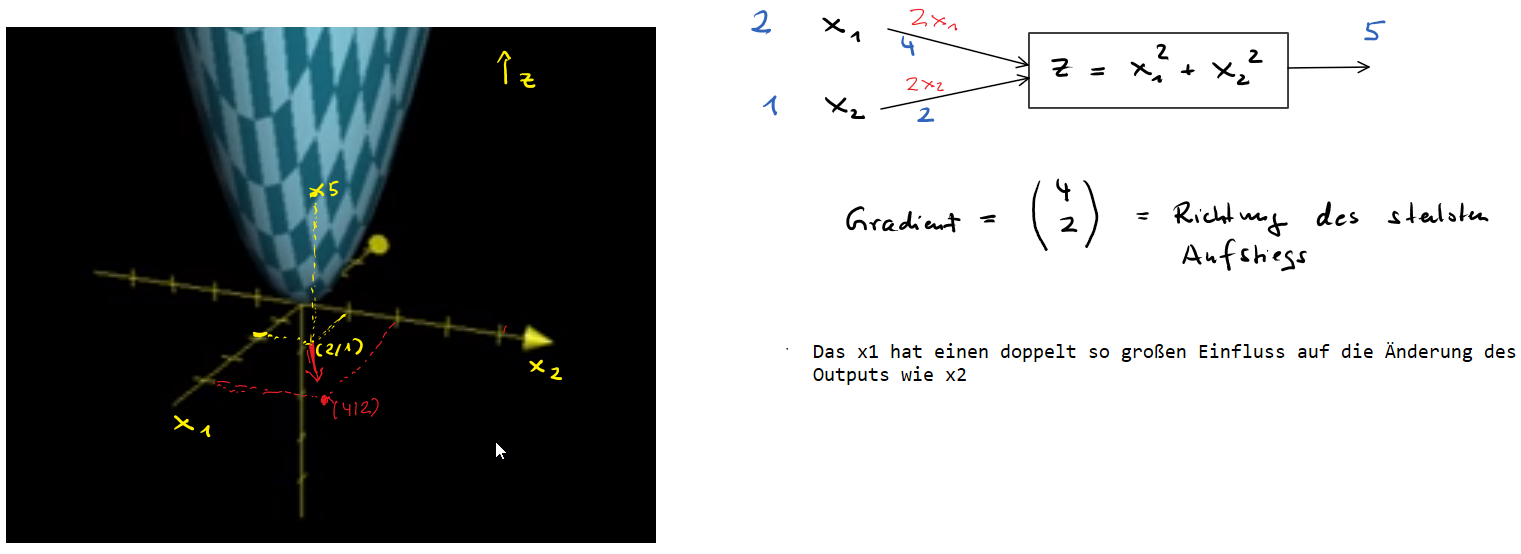 ↑ z
x 5
(2/1)
x₂
(4/2)
x₁
2 x₁ 2x₁ 4
z = x₁² + x₂² 5
1 x₂ 2x₂ 2
Gradient = (4 2) = Richtung des steilsten
Aufstiegs
Das x1 hat einen doppelt so großen Einfluss auf die Änderung des
Outputs wie x2